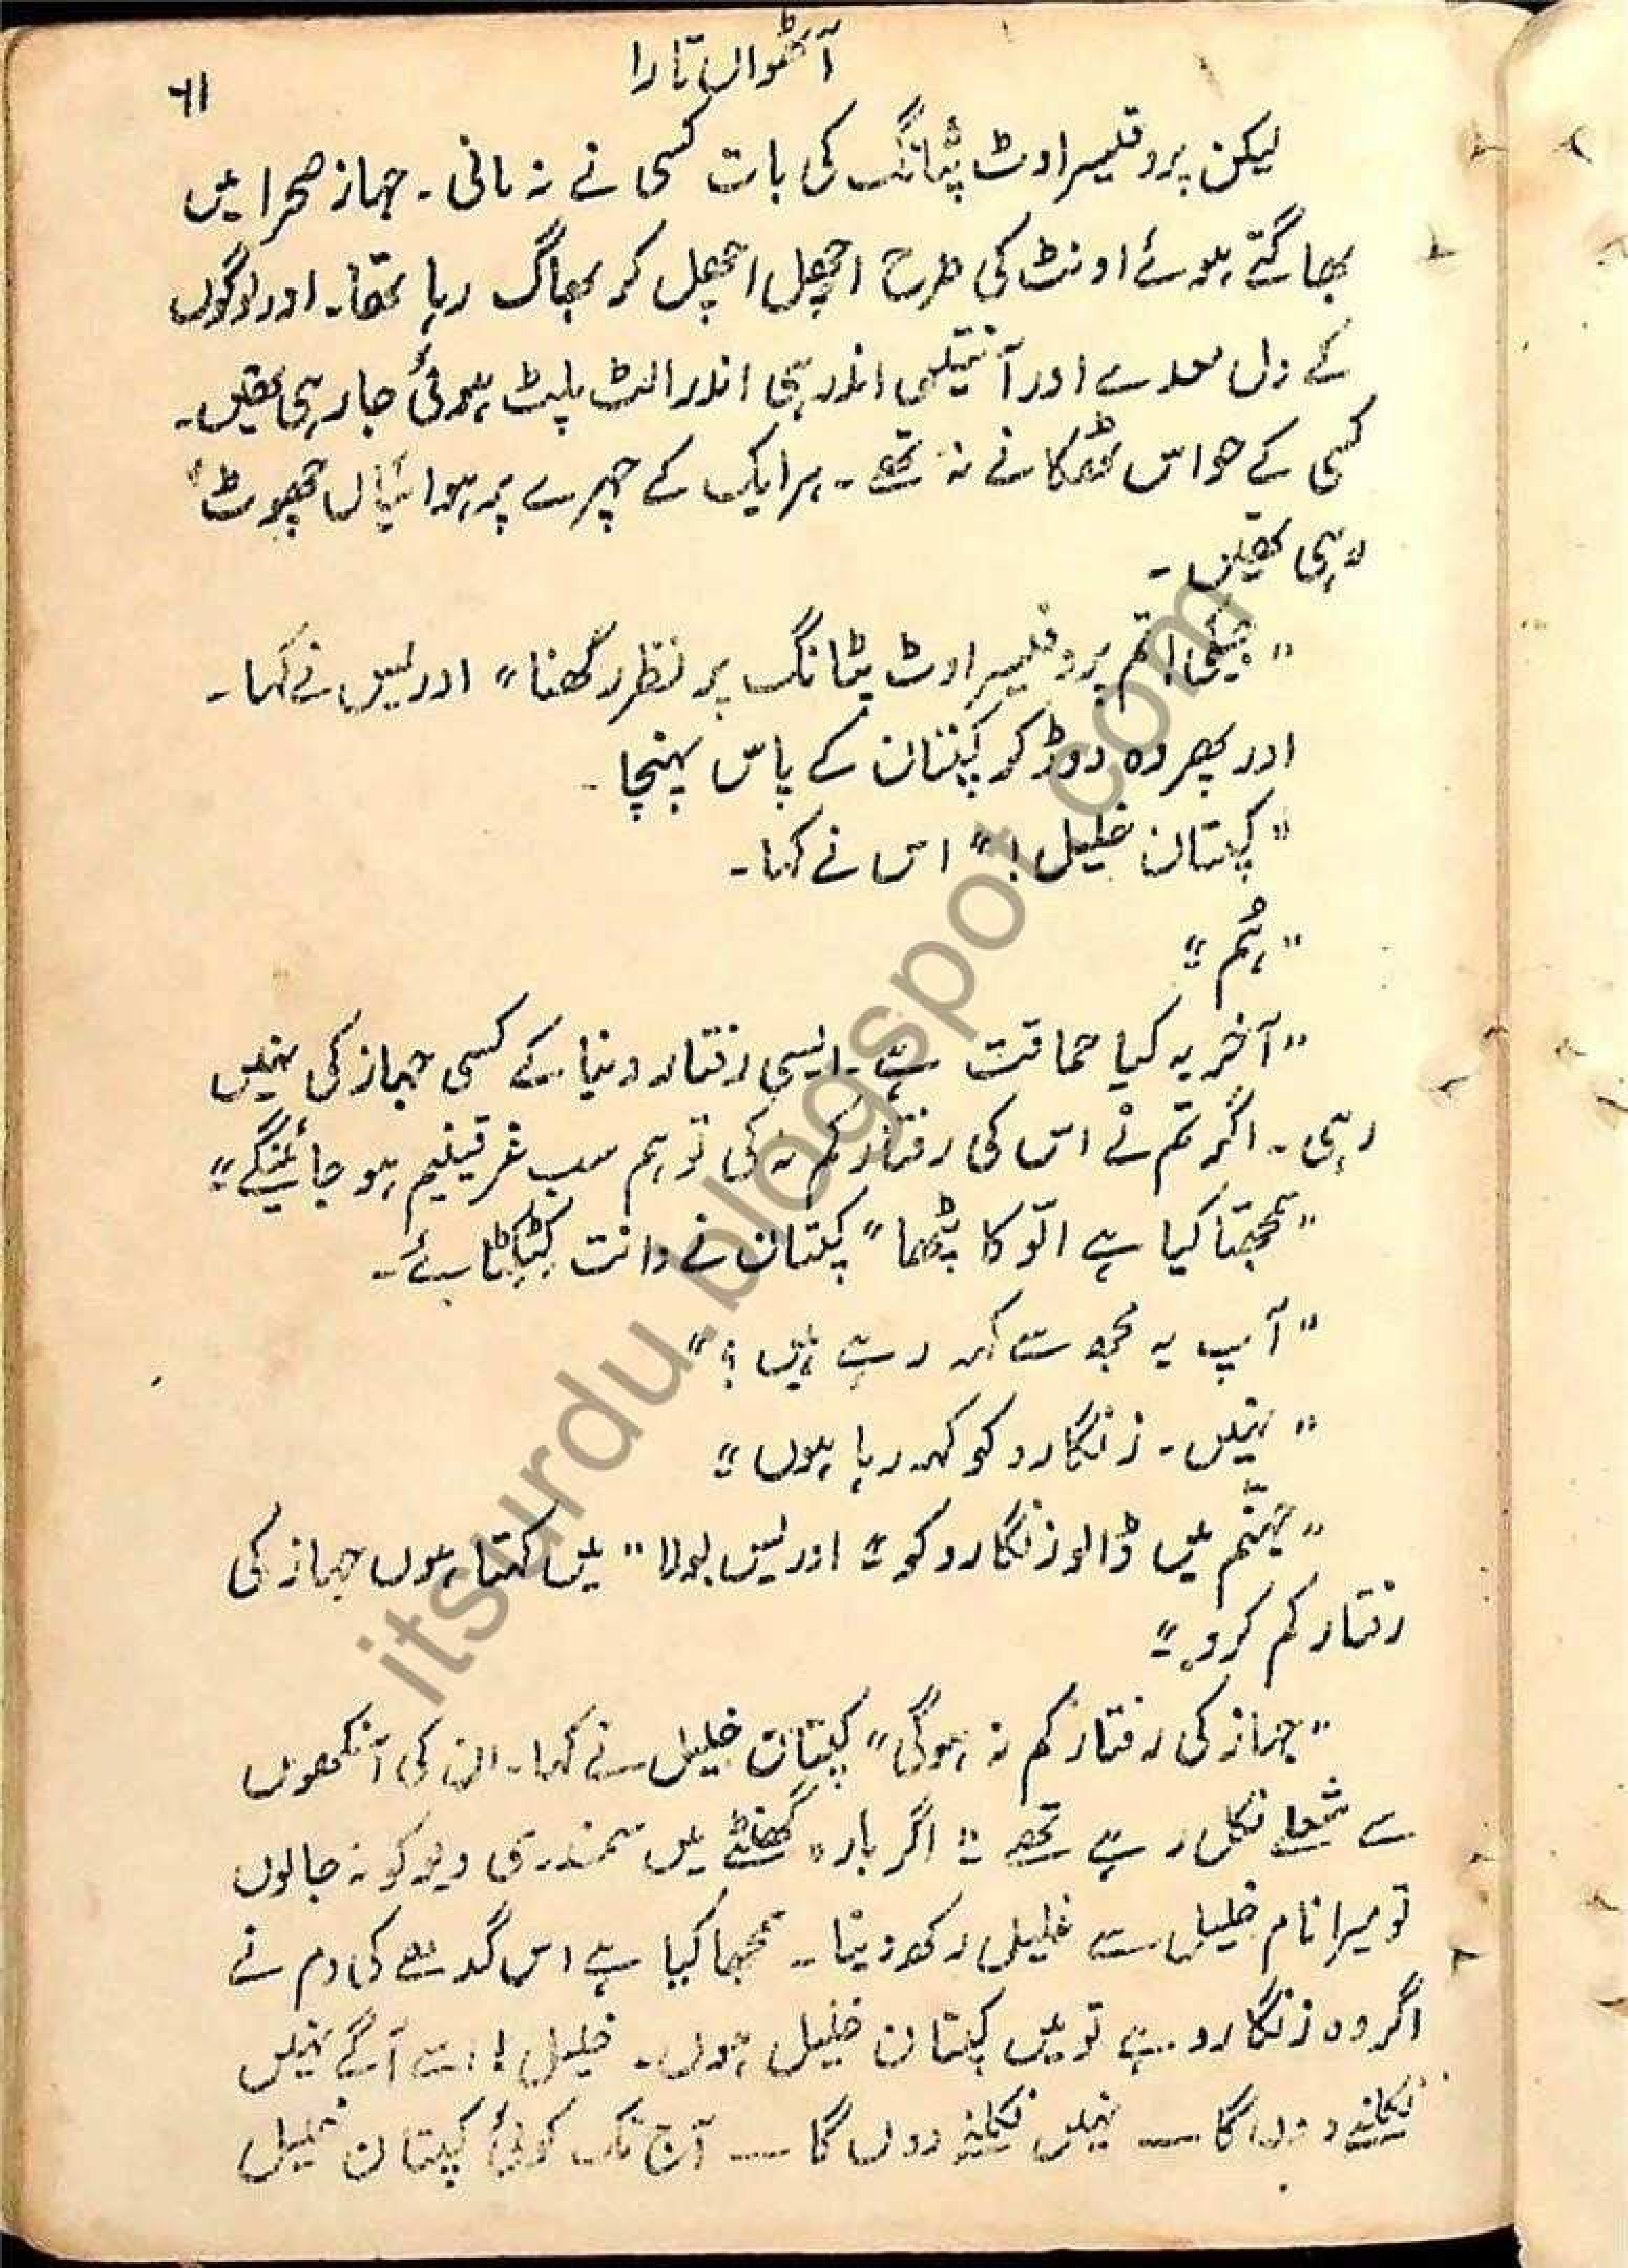 آٹھواں تارا
۶۱
لیکن پروفیسر اوٹ پٹانگ کی بات کسی نے نہ مانی۔ جہاز صحرا میں
بھاگتے ہوئے اونٹ کی طرح اچھل اچھل کر بھاگ رہا تھا۔ اور لوگوں
کے دل معدے اور آنتیں اندر ہی اندر الٹ پلٹ ہوئی جا رہی تھیں۔
کسی کے حواس ٹھکانے نہ تھے۔ ہر ایک کے چہرے پر ہوائیاں چھوٹ
رہی تھیں۔
"جیکی! تم پروفیسر اوٹ پٹانگ پر نظر رکھنا" ادریس نے کہا۔
اور پھر وہ دوڑ کر کپتان کے پاس پہنچا۔
"کپتان خلیل!" اس نے کہا۔
"ہُم"
"آخر یہ کیا حماقت ہے۔ ایسی رفتار دنیا کے کسی جہاز کی نہیں
رہی۔ اگر تم نے اس کی رفتار کم نہ کی تو ہم سب غرقینیم ہو جائینگے"
"سمجھتا کیا ہے الّو کا پٹھا" کپتان نے دانت کٹکٹائے۔
"آپ یہ مجھ سے کہہ رہے ہیں؟"
"نہیں۔ زنگارو کو کہہ رہا ہوں"
"جہنّم میں ڈالو زنگارو کو" ادریس بولا "میں کہتا ہوں جہاز کی
رفتار کم کرو۔"
"جہاز کی رفتار کم نہ ہوگی" کپتان خلیل نے کہا۔ ان کی آنکھوں
سے شعلے نکل رہے تھے" اگر بارہ گھنٹے میں سمندری دیو کو نہ جا لوں
تو میرا نام خلیل سے غلیل رکھ دینا۔ سمجھا کیا ہے اس گدھے کی دم نے
اگر وہ زنگارو ہے تو میں کپتان خلیل ہوں۔ خلیل! اسے آگے نہیں
نکلنے دوں گا — نہیں نکلنے دوں گا — آج تک کوئی کپتان خلیل
itsurdu.blogspot.com